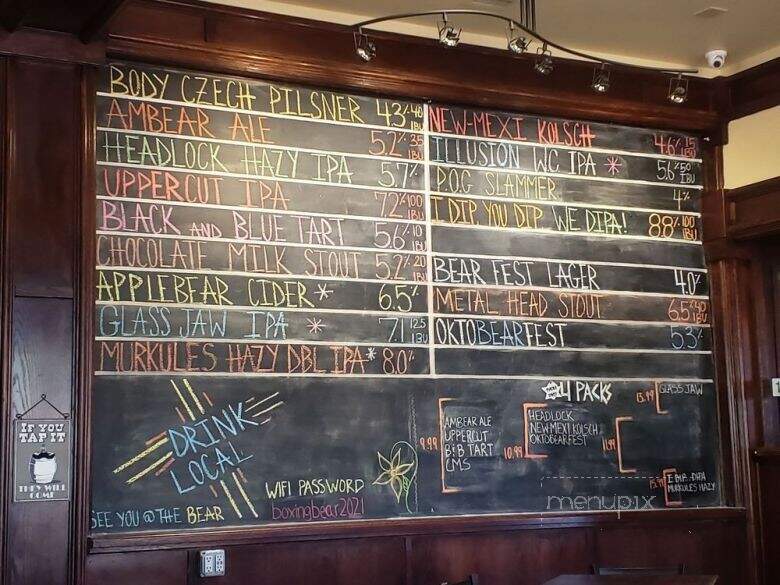 BODY CZECH PILSNER 4.3% 40 IBU
AMBEAR ALE 5.2% 35 IBU
HEADLOCK HAZY IPA 5.7%
UPPERCUT IPA 7.2% 100 IBU
BLACK AND BLUE TART 5.6% 10 IBU
CHOCOLATE MILK STOUT 5.2% 20 IBU
APPLEBEAR CIDER * 6.5%
GLASS JAW IPA * 7.1% 125 IBU
MURKULES HAZY DBL IPA * 8.0%
NEW-MEXI KOLSCH 4.6% 15 IBU
ILLUSION WC IPA * 5.6% 50 IBU
P.O.G SLAMMER 4%
I DIP, YOU DIP, WE DIPA! 8.8% 100 IBU
BEAR FEST LAGER 4.0%
METAL HEAD STOUT 6.5% 40 IBU
OKTOBEARFEST 5.3%
DRINK
LOCAL
SEE YOU @ THE BEAR
WIFI PASSWORD
boxingbear2021
4 PACKS
9.99
AMBEAR ALE
UPPERCUT
B+B TART
CMS
10.99
HEADLOCK
NEW-MEXI KOLSCH
OKTOBEARFEST
11.99
13.99
GLASS JAW
I DIP...DIPA
MURKULES HAZY
IF YOU
TAP IT
THEY WILL
COME
menupix